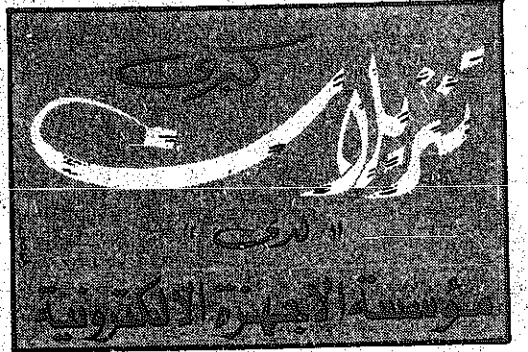 كبرى
تنزيلات
"لدى"
مؤسسة الأجهزة الإلكترونية